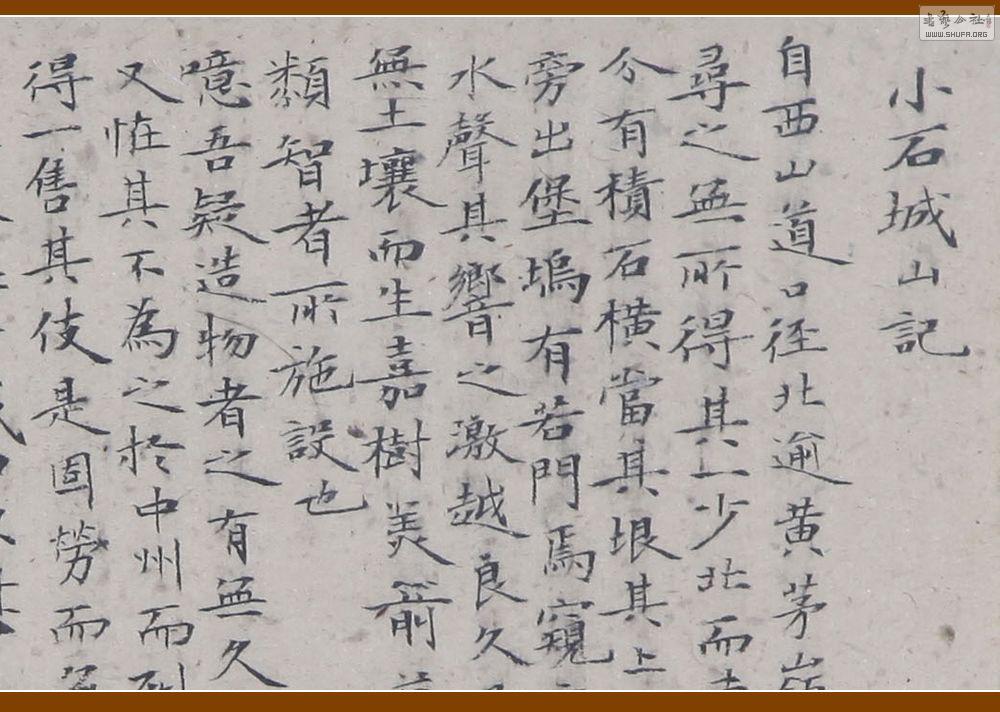 小石城山記
自西山道口徑北逾黃茅嶺
尋之無所得其一少北而東
分有積石橫當其垠其上
旁出堡塢有若門焉窺
水聲其響之激越良久
無土壤而生嘉樹美箭
類智者所施設也
噫吾疑造物者之有無久
又怪其不為之於中州而列
得一售其伎是固勞而
書藝公社
WWW.SHUFA.ORG